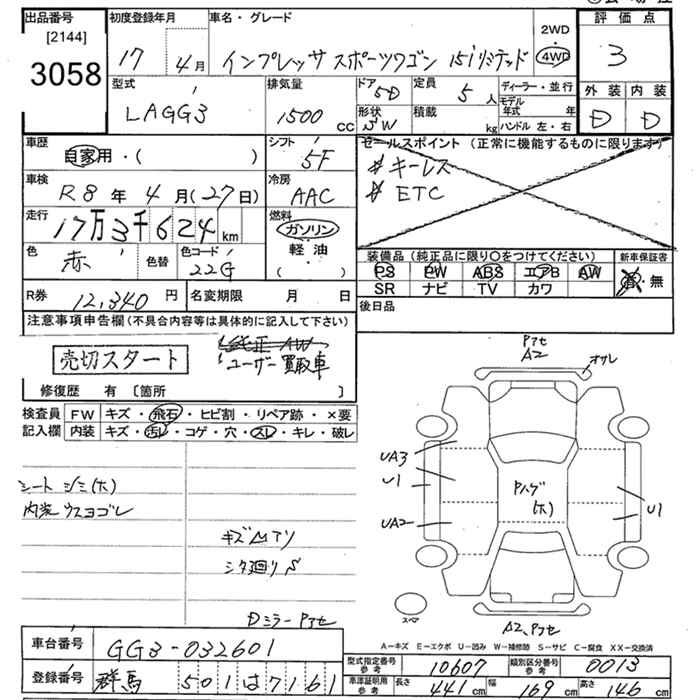 出品番号 [2144] 3058
初度登録年月 17年 4月
車名・グレード インプレッサ スポーツワゴン 15iリミテッド
2WD 4WD
評価点 3
外装 D 内装 D
型式 LAGG3
排気量 1500 CC
ドア 5D
形状 SW
定員 5人
積載 kg
ディーラー・並行
モデル年式 年
ハンドル 左・右
車歴 自家用・( )
シフト 5F
セールスポイント (正常に機能するものに限ります)
# キーレス
# ETC
車検 R8年 4月(27日)
冷房 AAC
走行 17万3千624km
燃料 ガソリン 軽油 ( ・ )
色 赤 色替 色コード 22G
装備品 (純正品に限り○をつけてください) 新車保証書
PS PW ABS エアB AW 有・無
SR ナビ TV カワ
R券 12,340円 名変期限 月 日
後日品
注意事項申告欄(不具合内容等は具体的に記入して下さい)
純正 AW
売切スタート
ユーザー買取車
修復歴 有〔箇所 〕
検査員記入欄
FW キズ・飛石・ヒビ割・リペア跡・×要
内装 キズ・汚レ・コゲ・穴・スレ・キレ・破レ
シートジミ(ホ)
内装ウスヨゴレ
キズムアリ
シタ廻りS
DミラーPアセ
Pアセ
A2
オサレ
UA3
U1
UA2
Pハゲ
(ホ)
U1
スペア
A2、Pアセ
A-キズ E-エクボ U-凹み W-補修跡 S-サビ C-腐食 XX-交換済
車台番号 GG3-032601
型式指定番号 参考 10607 類別区分番号 参考 0013
登録番号 群馬 501は7161
車庫証明用 参考 長さ 441cm 幅 169cm 高さ 146cm